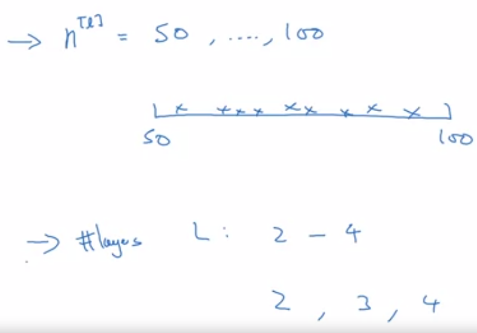 → n^[l] = 50, ...., 100
50 100
→ #layers L: 2 - 4
2, 3, 4